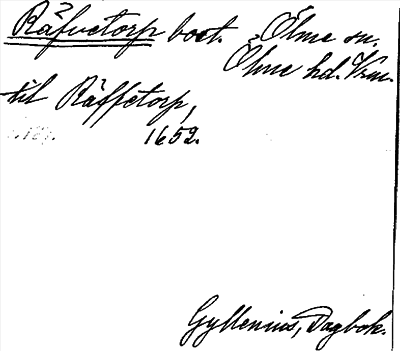 Räfvetorp bost. Ölme sn.
Ölme hd. Vrm.
till Räffetorp,
1652.
Gyllenius, Dagbok.